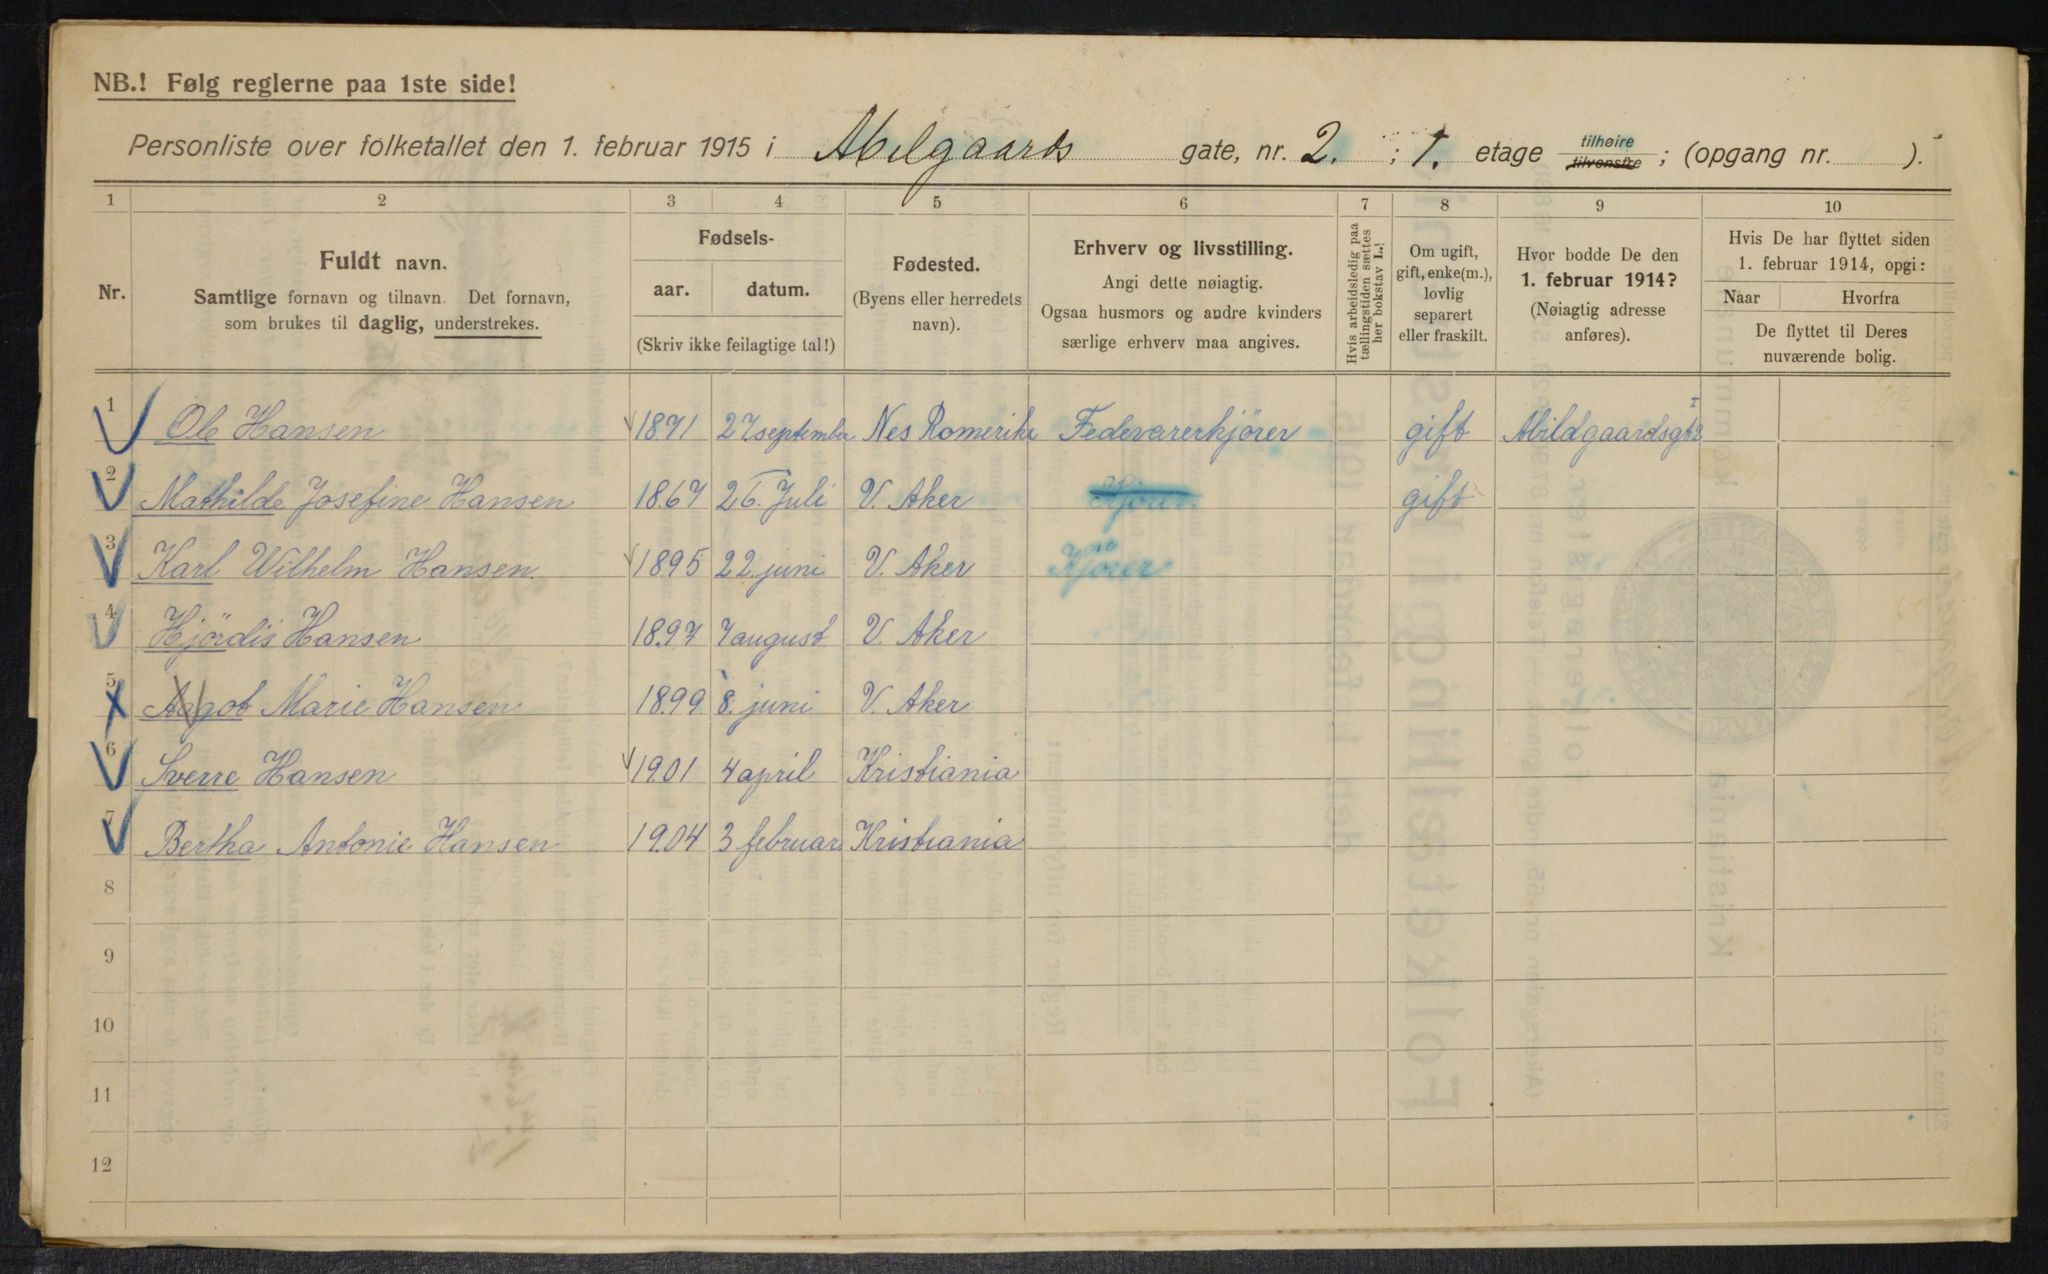 NB.! Følg reglerne paa 1ste side!
Personliste over folketallet den 1. februar 1915 i Abelgaards gate, nr. 2. ; 1. etage tilhøire tilvenstre ; (opgang nr. ).
1 2 3 4 5 6 7 8 9 10
Nr.
Fuldt navn.
Samtlige fornavn og tilnavn. Det fornavn,
som brukes til daglig, understrekes.
Fødsels-
aar. datum.
(Skriv ikke feilagtige tal!)
Fødested.
(Byens eller herredets
navn).
Erhverv og livsstilling.
Angi dette nøiagtig.
Ogsaa husmors og andre kvinders
særlige erhverv maa angives.
Hvis arbeidsledig paa
tællingstiden sættes
her bokstav L.!
Om ugift,
gift, enke(m.),
lovlig
separert
eller fraskilt.
Hvor bodde De den
1. februar 1914?
(Nøiagtig adresse
anføres).
Hvis De har flyttet siden
1. februar 1914, opgi:
Naar Hvorfra
De flyttet til Deres
nuværende bolig.
1 Ole Hansen 1871 27 september Nes Romerike Fedevarerkjörer gift Abildgaardsgt 2 I
2 Mathilde Josefine Hansen 1867 26. Juli V. Aker Kjörer gift
3 Karl Wilhelm Hansen. 1895 22. juni V. Aker Kjörer
4 Hjördis Hansen 1897 7 august V. Aker
5 Aagot Marie Hansen 1899 8. juni V. Aker
6 Sverre Hansen 1901 4 april Kristiania
7 Bertha Antonie Hansen 1904 3 februar Kristiania
8
9
10
11
12